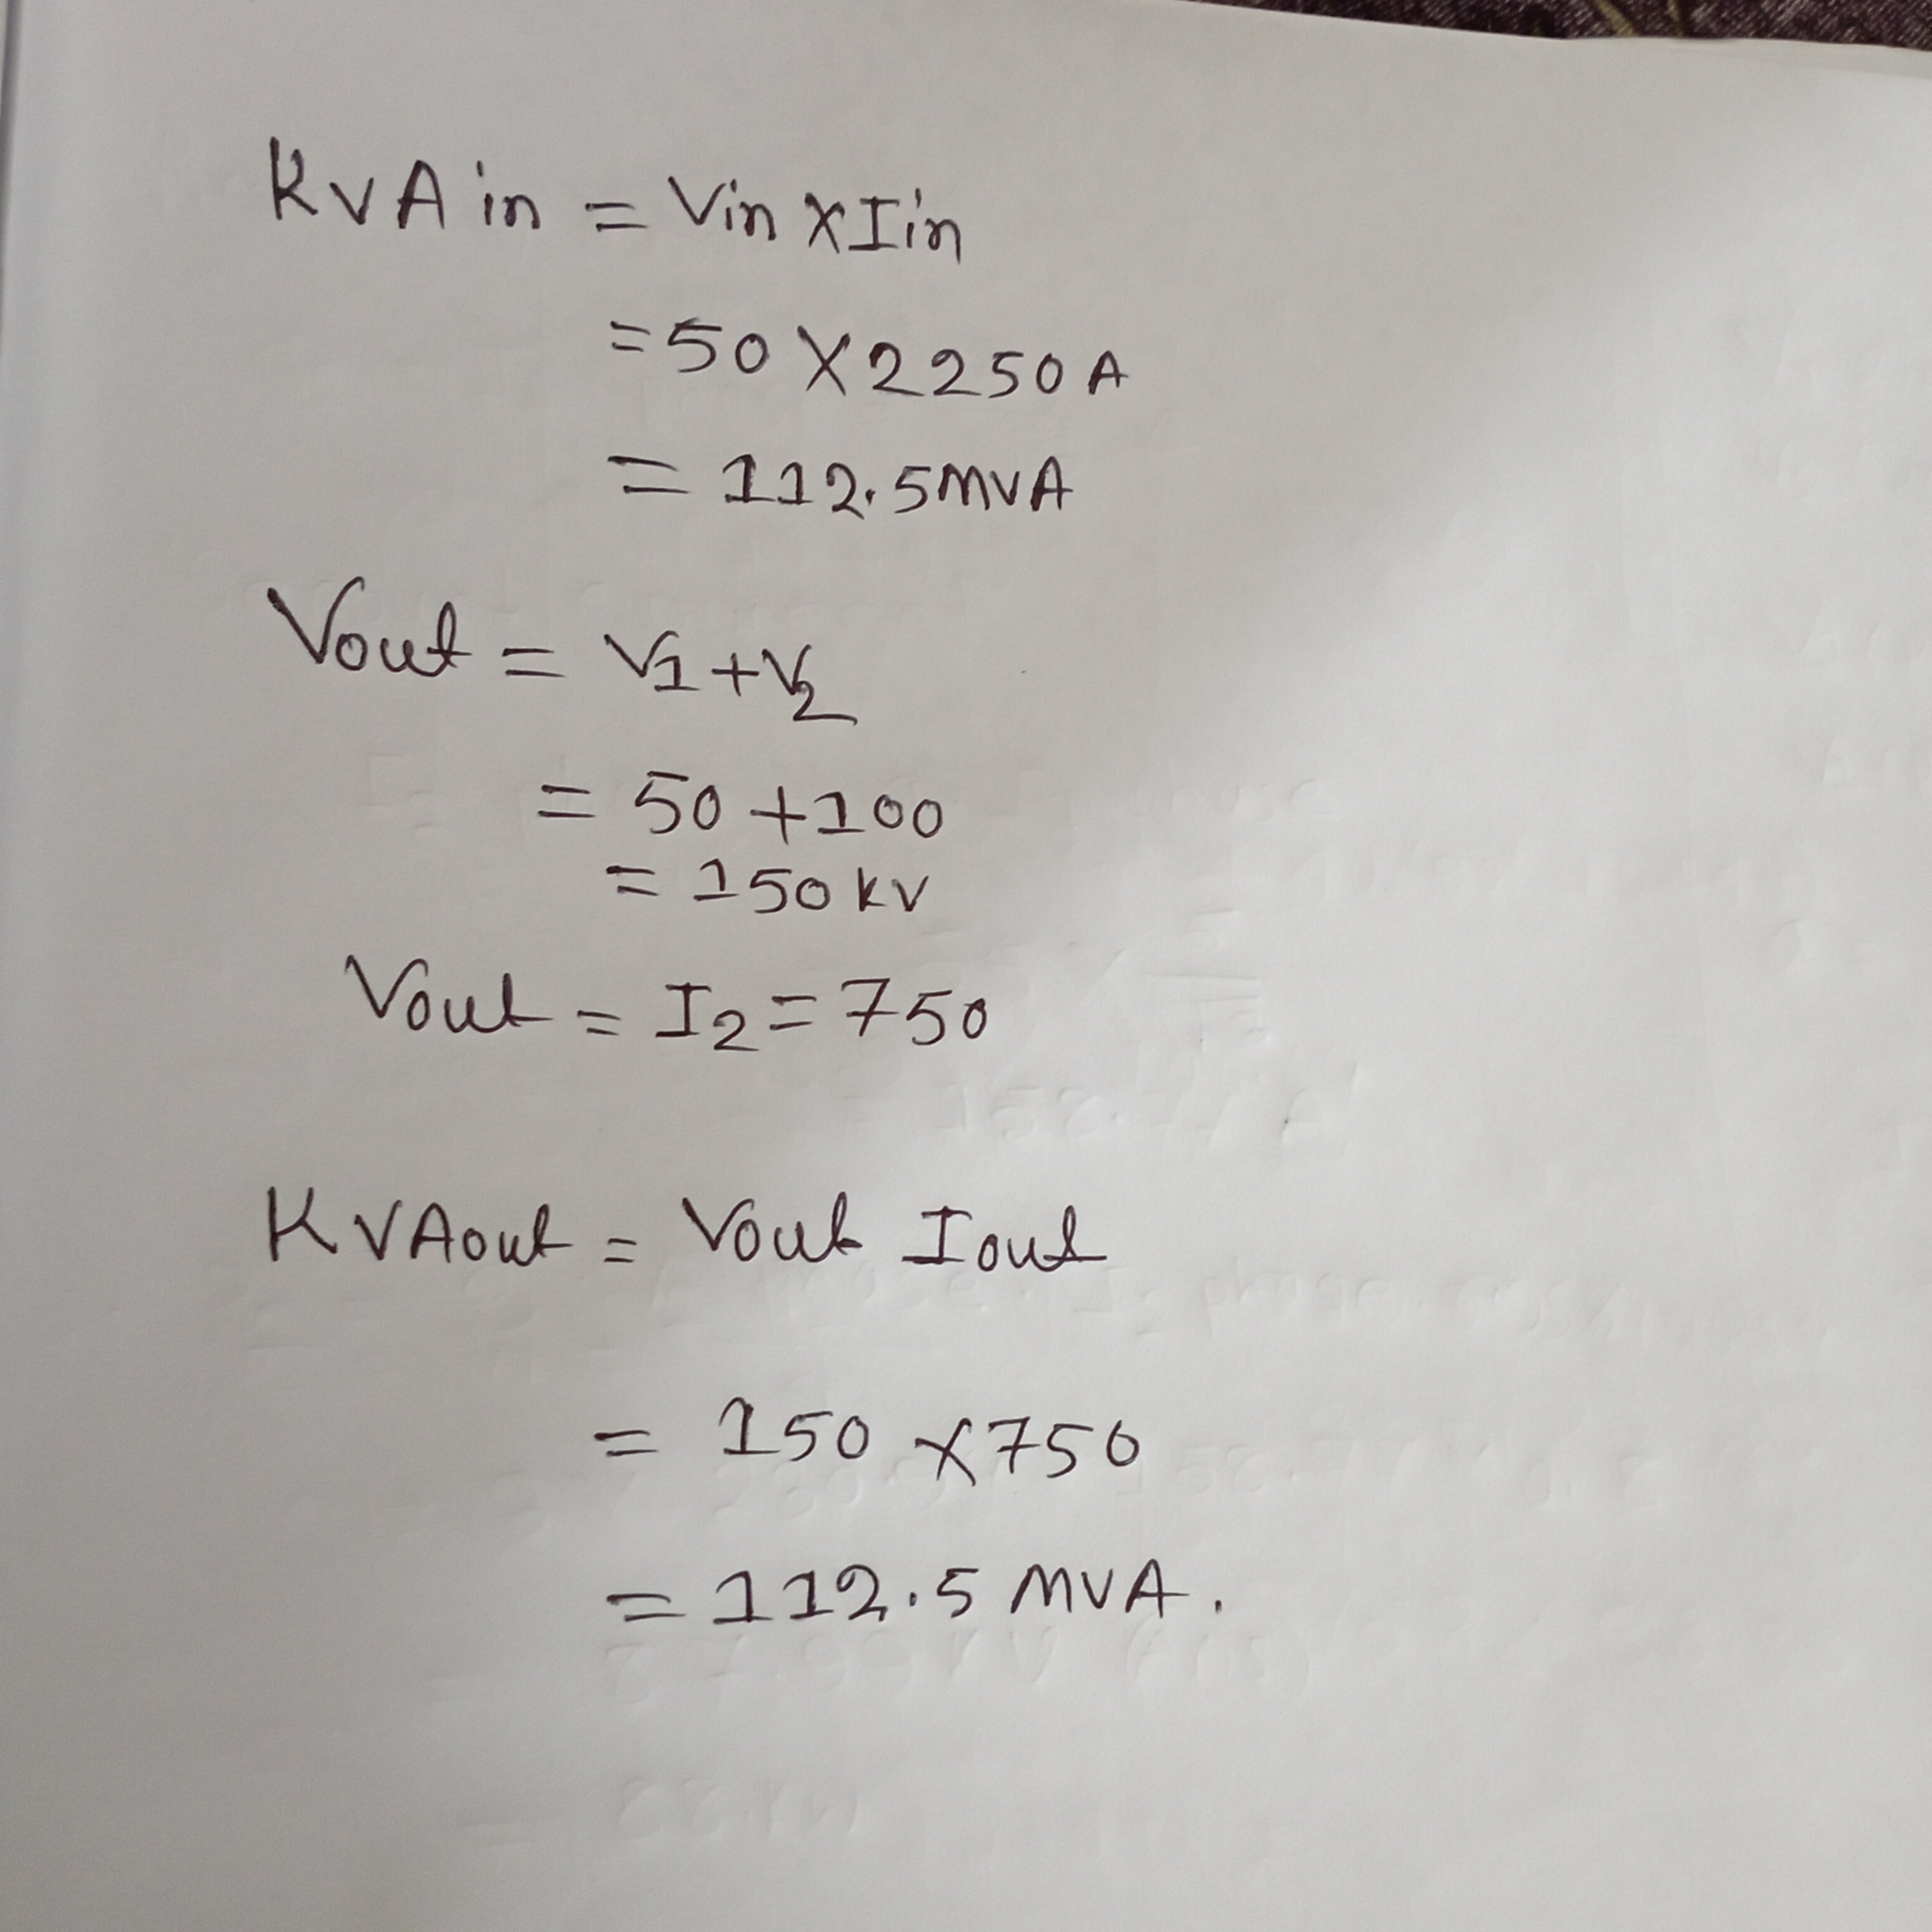 KVA in = Vin X Iin
= 50 X 2250 A
= 112.5 MVA
Vout = V1 + V2
= 50 + 100
= 150 kV
Vout = I2 = 750
KVAout = Vout Iout
= 150 X 750
= 112.5 MVA.